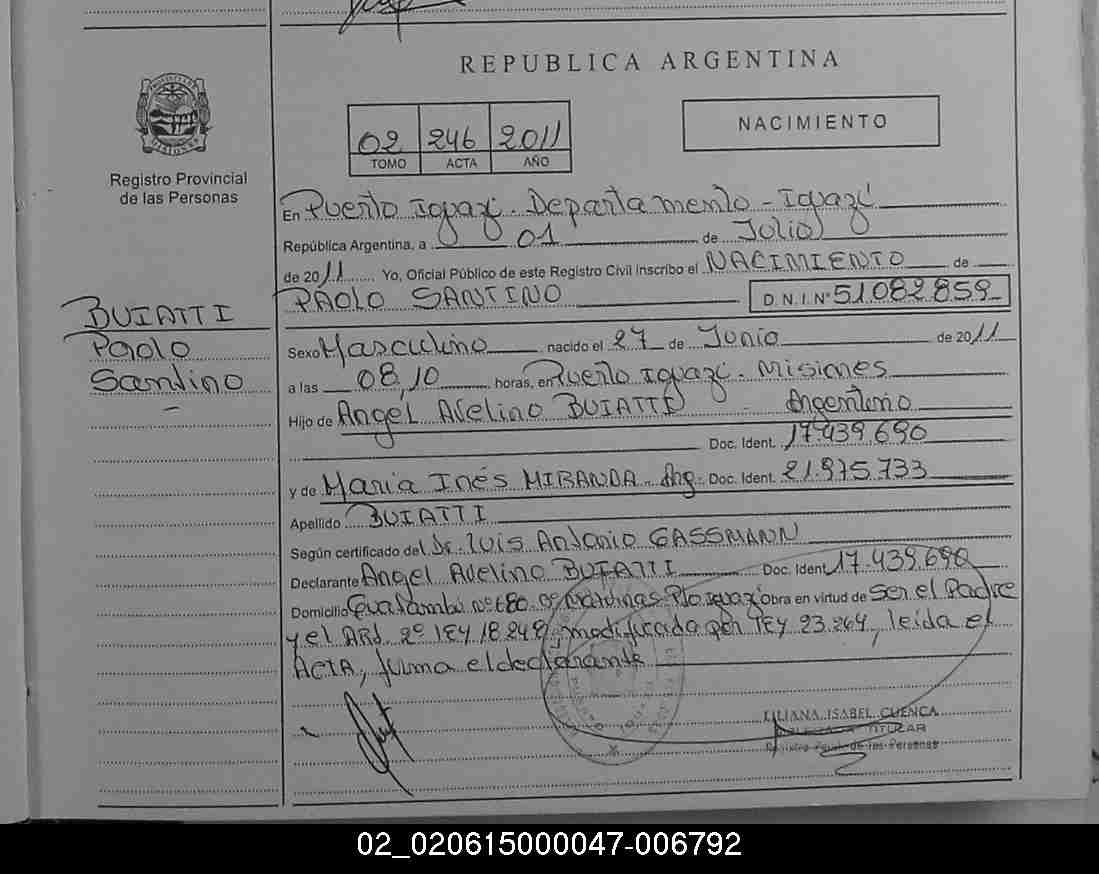 REPUBLICA ARGENTINA
02 246 2011
TOMO ACTA AÑO
NACIMIENTO
Registro Provincial
de las Personas
En Puerto Iguazú. Departamento - Iguazú
República Argentina, a 01 de Julio
de 2011 Yo, Oficial Público de este Registro Civil inscribo el NACIMIENTO de
PAOLO SANTINO D.N.I. Nº 51.082.859
BUIATTI
Paolo
Santino
Sexo Masculino nacido el 27 de Junio de 2011
a las 08,10 horas, en Puerto Iguazú. Misiones
Hijo de Angel Avelino BUIATTI Argentino
Doc. Ident. 17.439.690
y de María Inés MIRANDA Arg. Doc. Ident. 21.975.733
Apellido BUIATTI
Según certificado del Dr. Luis Antonio GASSMANN
Declarante Angel Avelino BUIATTI Doc. Ident. 17.439.690
Domicilio Guatambú nº 680. Malvinas Pto Iguazú Obra en virtud de Ser el Padre
y el Art. 2º LEY 18.248, modificada por LEY 23.264, leída el
ACTA, firma el declarante
LILIANA ISABEL CUENCA
DELEGADA TITULAR
de las Personas
02_020615000047-006792